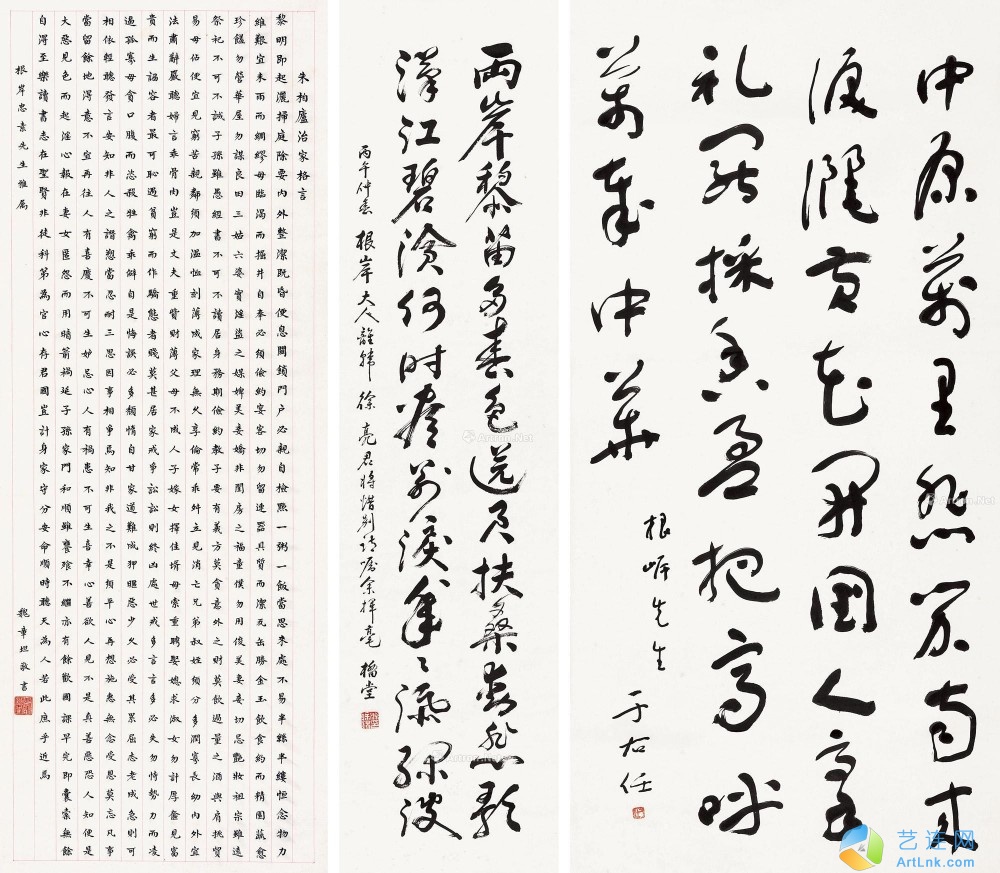 朱柏廬治家格言
黎明即起灑掃庭除要內外整潔既昏便息關鎖門戶必親自檢點一粥一飯當思來處不易半絲半縷恒念物力
維艱宜未雨而綢繆毋臨渴而掘井自奉必須儉約宴客切勿留連器具質而潔瓦缶勝金玉飲食約而精園蔬愈
珍饈勿營華屋勿謀良田三姑六婆實淫盜之媒婢美妾嬌非閨房之福童僕勿用俊美妻妾切忌艷妝祖宗雖遠
祭祀不可不誠子孫雖愚經書不可不讀居身務期儉約教子要有義方莫貪意外之財莫飲過量之酒與肩挑貿
易毋佔便宜見窮苦親鄰須加溫恤刻薄成家理無久享倫常乖舛立見消亡兄弟叔姪須分多潤寡長幼內外宜
法肅辭嚴聽婦言乖骨肉豈是丈夫重貲財薄父母不成人子嫁女擇佳婿毋索重聘娶媳求淑女勿計厚奩見富
貴而生諂容者最可恥遇貧窮而作驕態者賤莫甚居家戒爭訟訟則終凶處世戒多言言多必失勿恃勢力而凌
逼孤寡毋貪口腹而恣殺牲禽乖僻自是悔誤必多頹惰自甘家道難成狎暱惡少久必受其累屈志老成急則可
相依輕聽發言安知非人之譖愬當忍耐三思因事相爭焉知非我之不是須平心再想施惠無念受恩莫忘凡事
當留餘地得意不宜再往人有喜慶不可生妒忌心人有禍患不可生喜幸心善欲人見不是真善惡恐人知便是
大惡見色而起淫心報在妻女匿怨而用暗箭禍延子孫家門和順雖饔飧不繼亦有餘歡國課早完即囊橐無餘
自得至樂讀書志在聖賢非徒科第為官心存君國豈計身家守分安命順時聽天為人若此庶乎近焉
根岸忠素先生雅屬
魏章坦敬書
兩岸黎苗多春色送君扶桑
漢江碧何時別淚年〻添綠波
丙午仲春 根岸大人離韓 徐亮君將惜別情屬余揮毫
中原萬里悲笳南來
淚黃花開國人豪
礼罷採香盈把高呼
萬歲中華
根岸先生
于右任
艺连网
ArtLnk.com